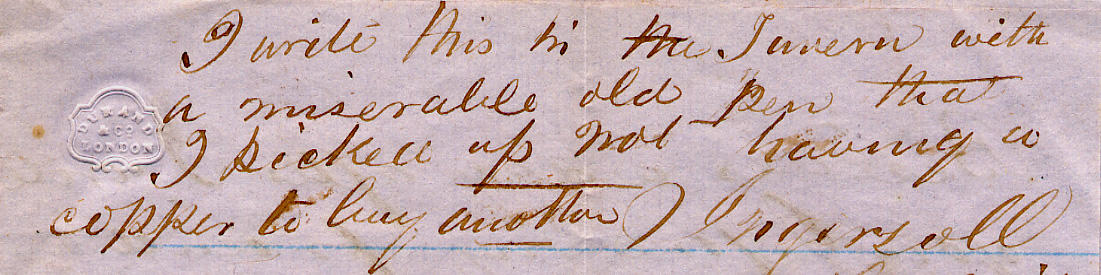 I write this in the Tavern with
a miserable old pen that
DURAND
& Co
LONDON
I picked up not having a
copper to buy another) Ingersoll